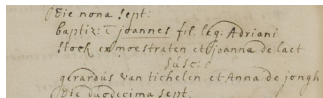 Die nona sept:
baptiz: ē joannes fil. leg. Adriani
stock ex moestraten et joanna de laet
susc:
gerardus van tichelen et Anna de jongh
Die duodecima sept.